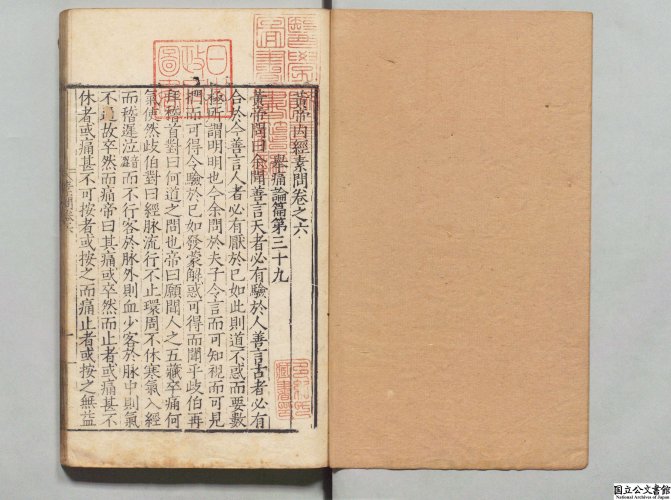 黃帝內經素問卷之六
舉痛論篇第三十九
黃帝問曰余聞善言天者必有驗於人善言古者必有
合於今善言人者必有厭於已如此則道不惑而要數
極所謂明明也今余問於夫子令言而可知視而可見
捫而可得令驗於已如發蒙解惑可得而聞乎歧伯再
拜稽首對曰何道之問也帝曰願聞人之五藏卒痛何
氣使然歧伯對曰經脉流行不止環周不休寒氣入經
而稽遲泣音澁而不行客於脉外則血少客於脉中則氣
不通故卒然而痛帝曰其痛或卒然而止者或痛甚不
休者或痛甚不可按者或按之而痛止者或按之無益
國立公文書館
National Archives of Japan